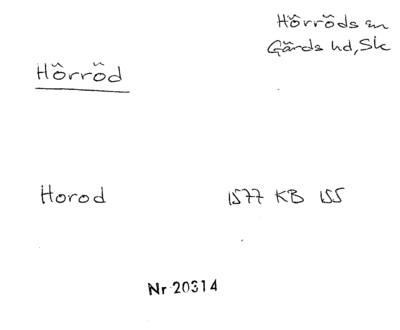 Hörröds sn
Gärds hd, Sk
Hörröd
Horod 1577 KB 155
Nr 20314